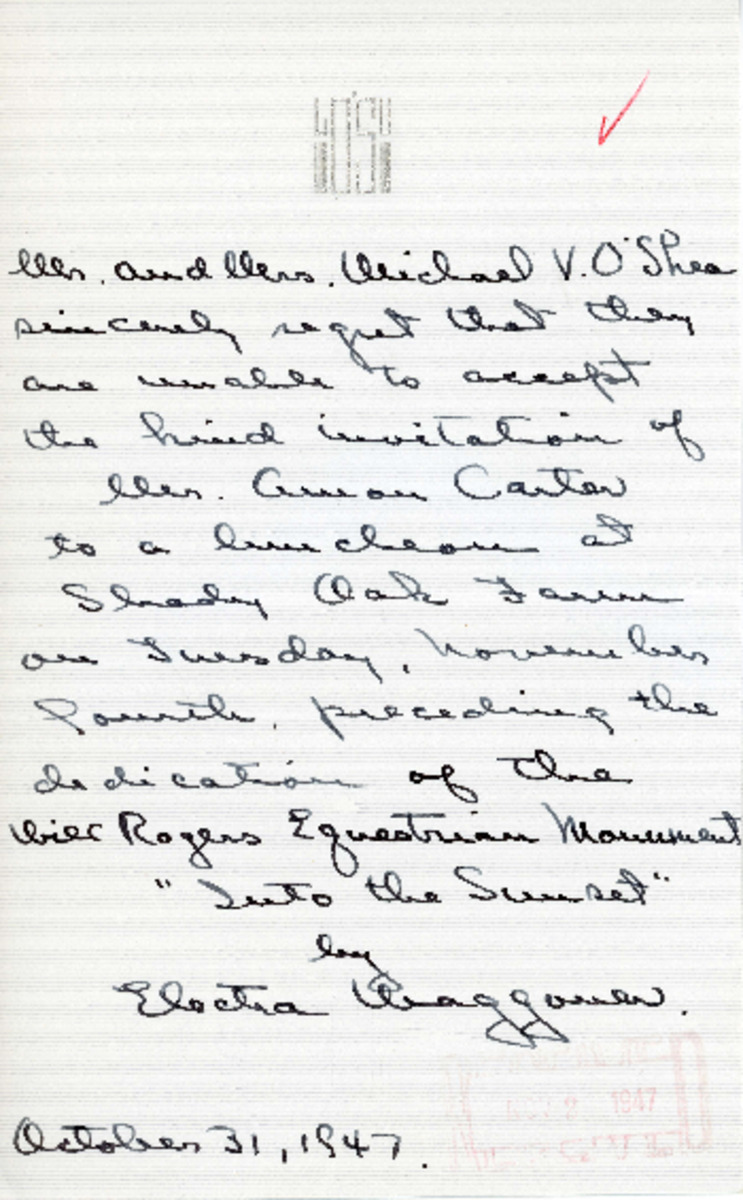 Mr. and Mrs. Michael V. O'Shea
sincerely regret that they
are unable to accept
the kind invitation of
Mr. Amon Carter
to a luncheon at
Shady Oak Farm
on Tuesday, November
fourth, preceding the
dedication of the
Will Rogers Equestrian Monument
"Into the Sunset"
by
Electra Waggoner.
1947
October 31, 1947.